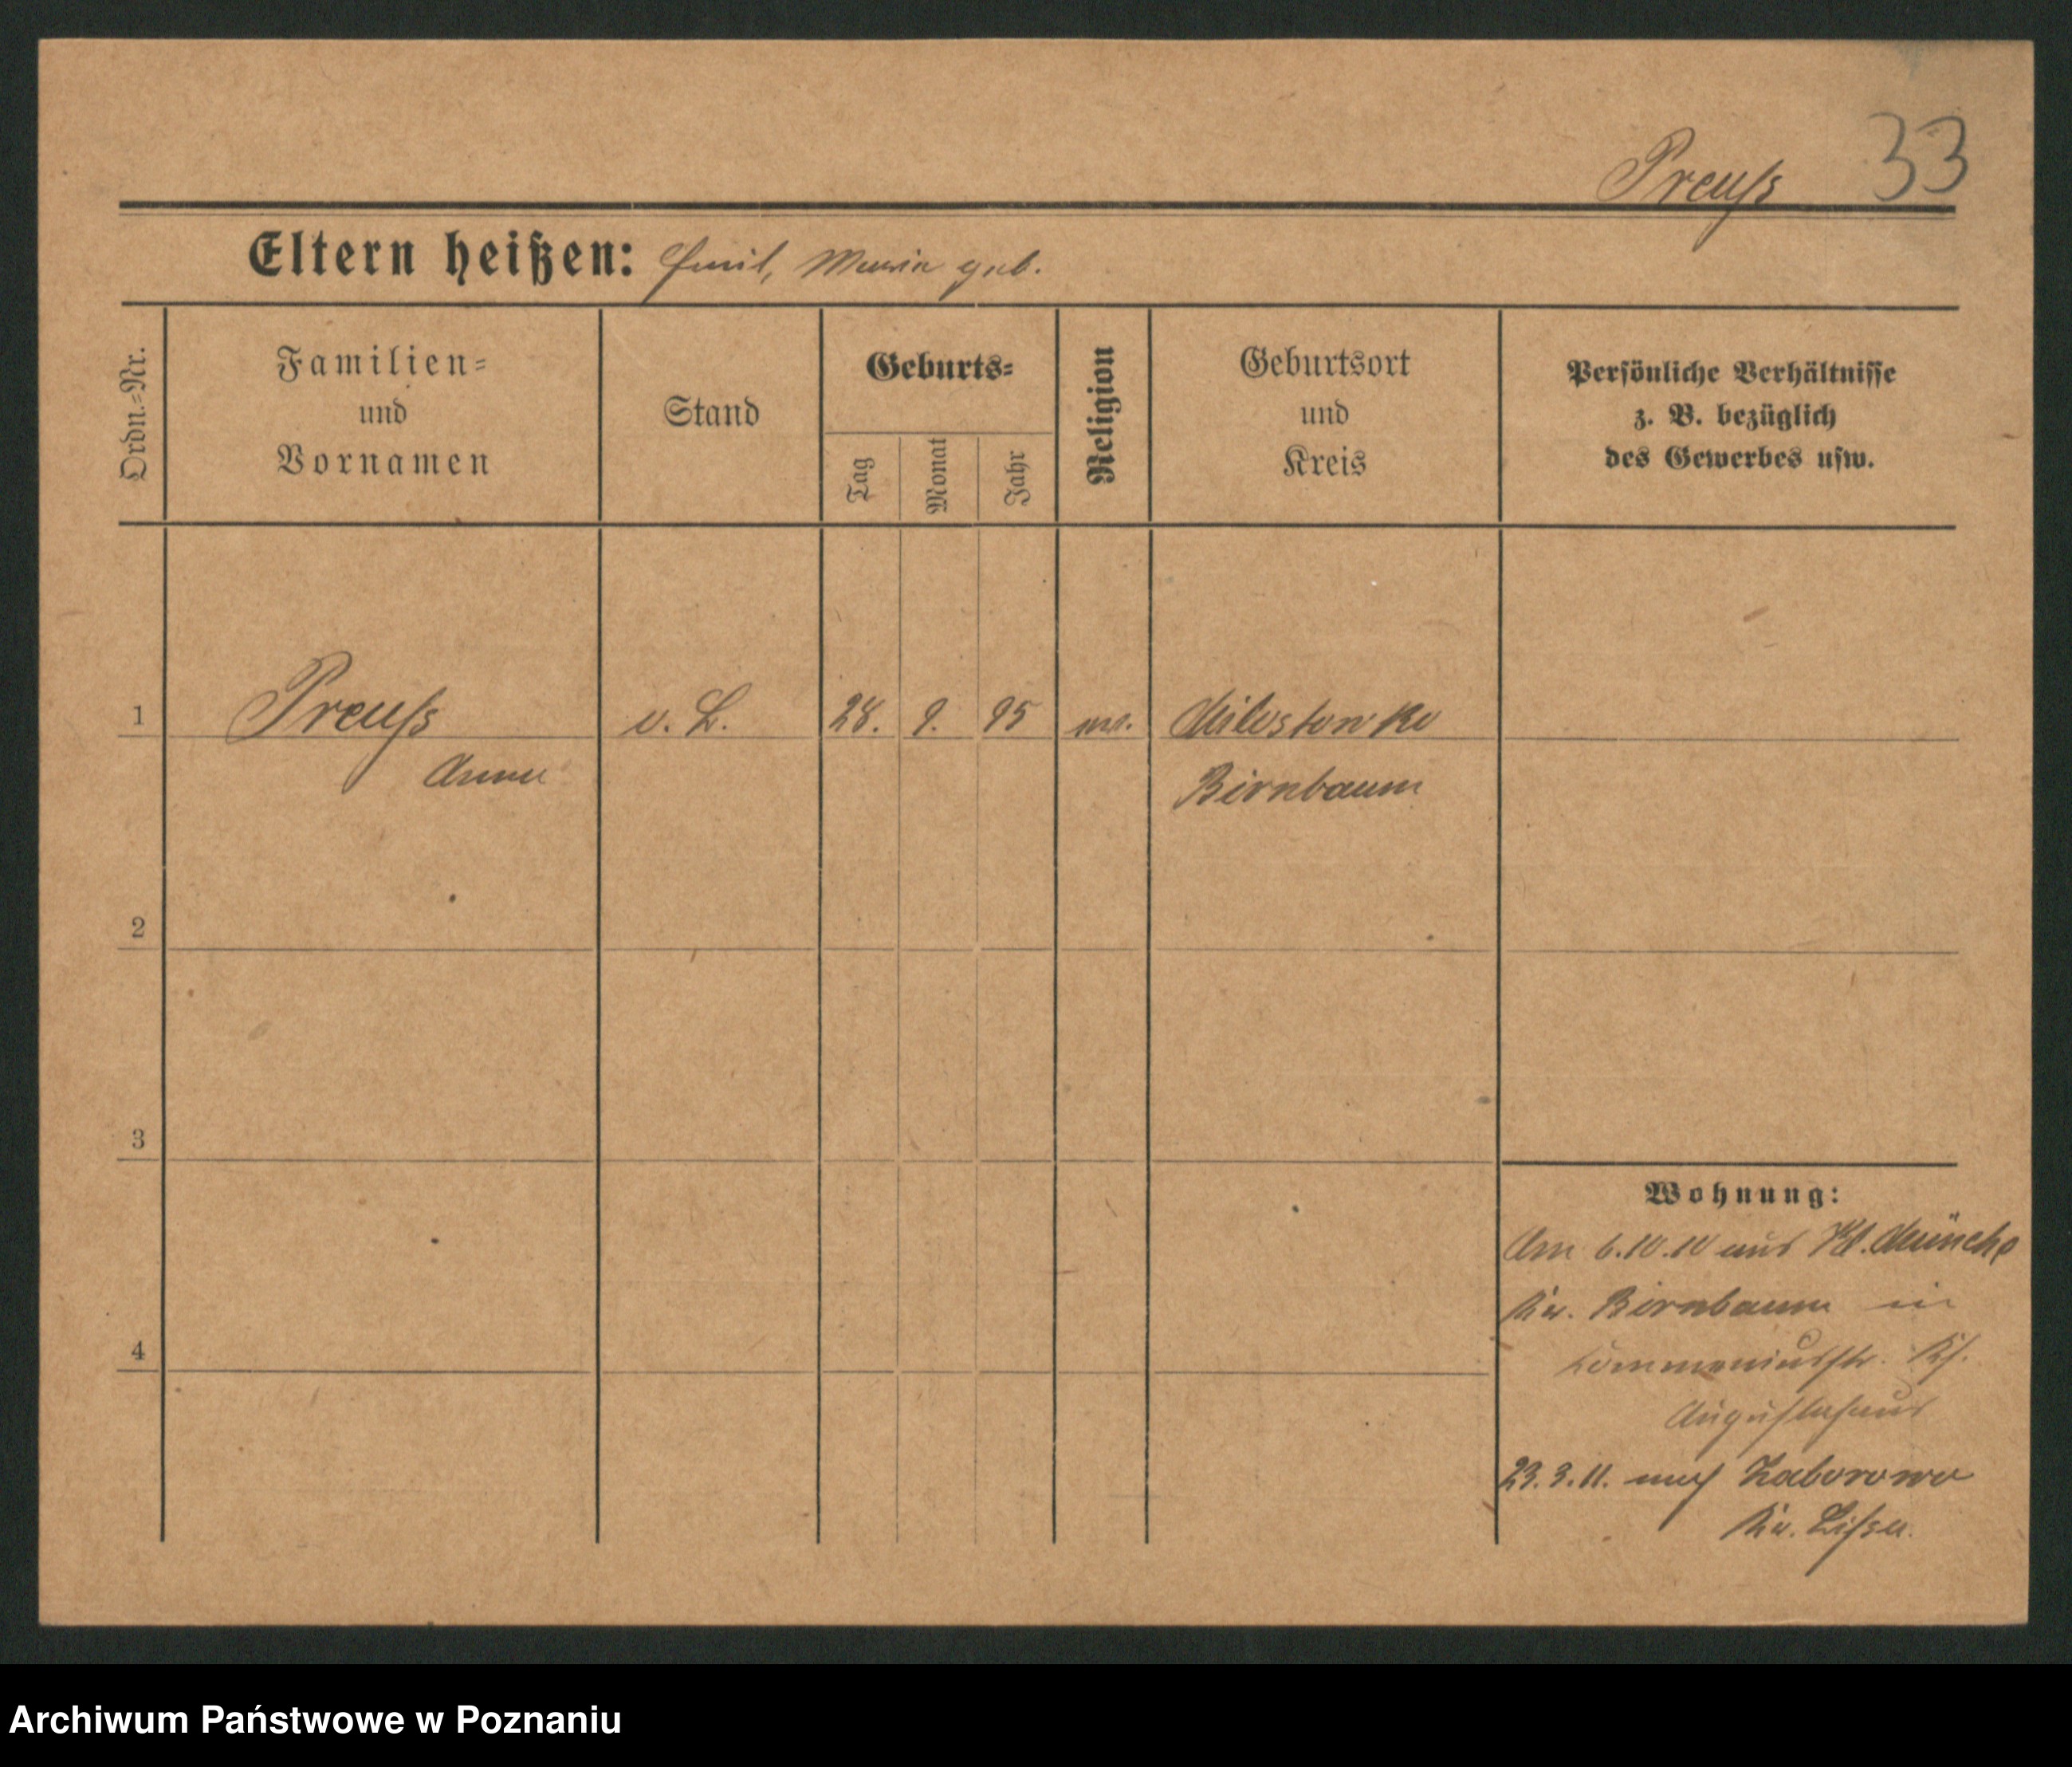 33
Preuſs
Eltern heißen: Emil, Maria geb.
Ordn.=Nr.
Familien=
und
Vornamen
Stand
Geburts=
Tag
Monat
Jahr
Religion
Geburtsort
und
Kreis
Persönliche Verhältnisse
z. B. bezüglich
des Gewerbes usw.
1 Preuſs o. B. 28. 9. 95 Milostowko
Anna Birnbaum
2
3
4
Wohnung:
Am 6.10.10 aus Kl. Münche
Kr. Birnbaum in
Commeniusstr.
Augustahaus
23.3.11. nach Zaborowo
Kr. Lissa.
Archiwum Państwowe w Poznaniu